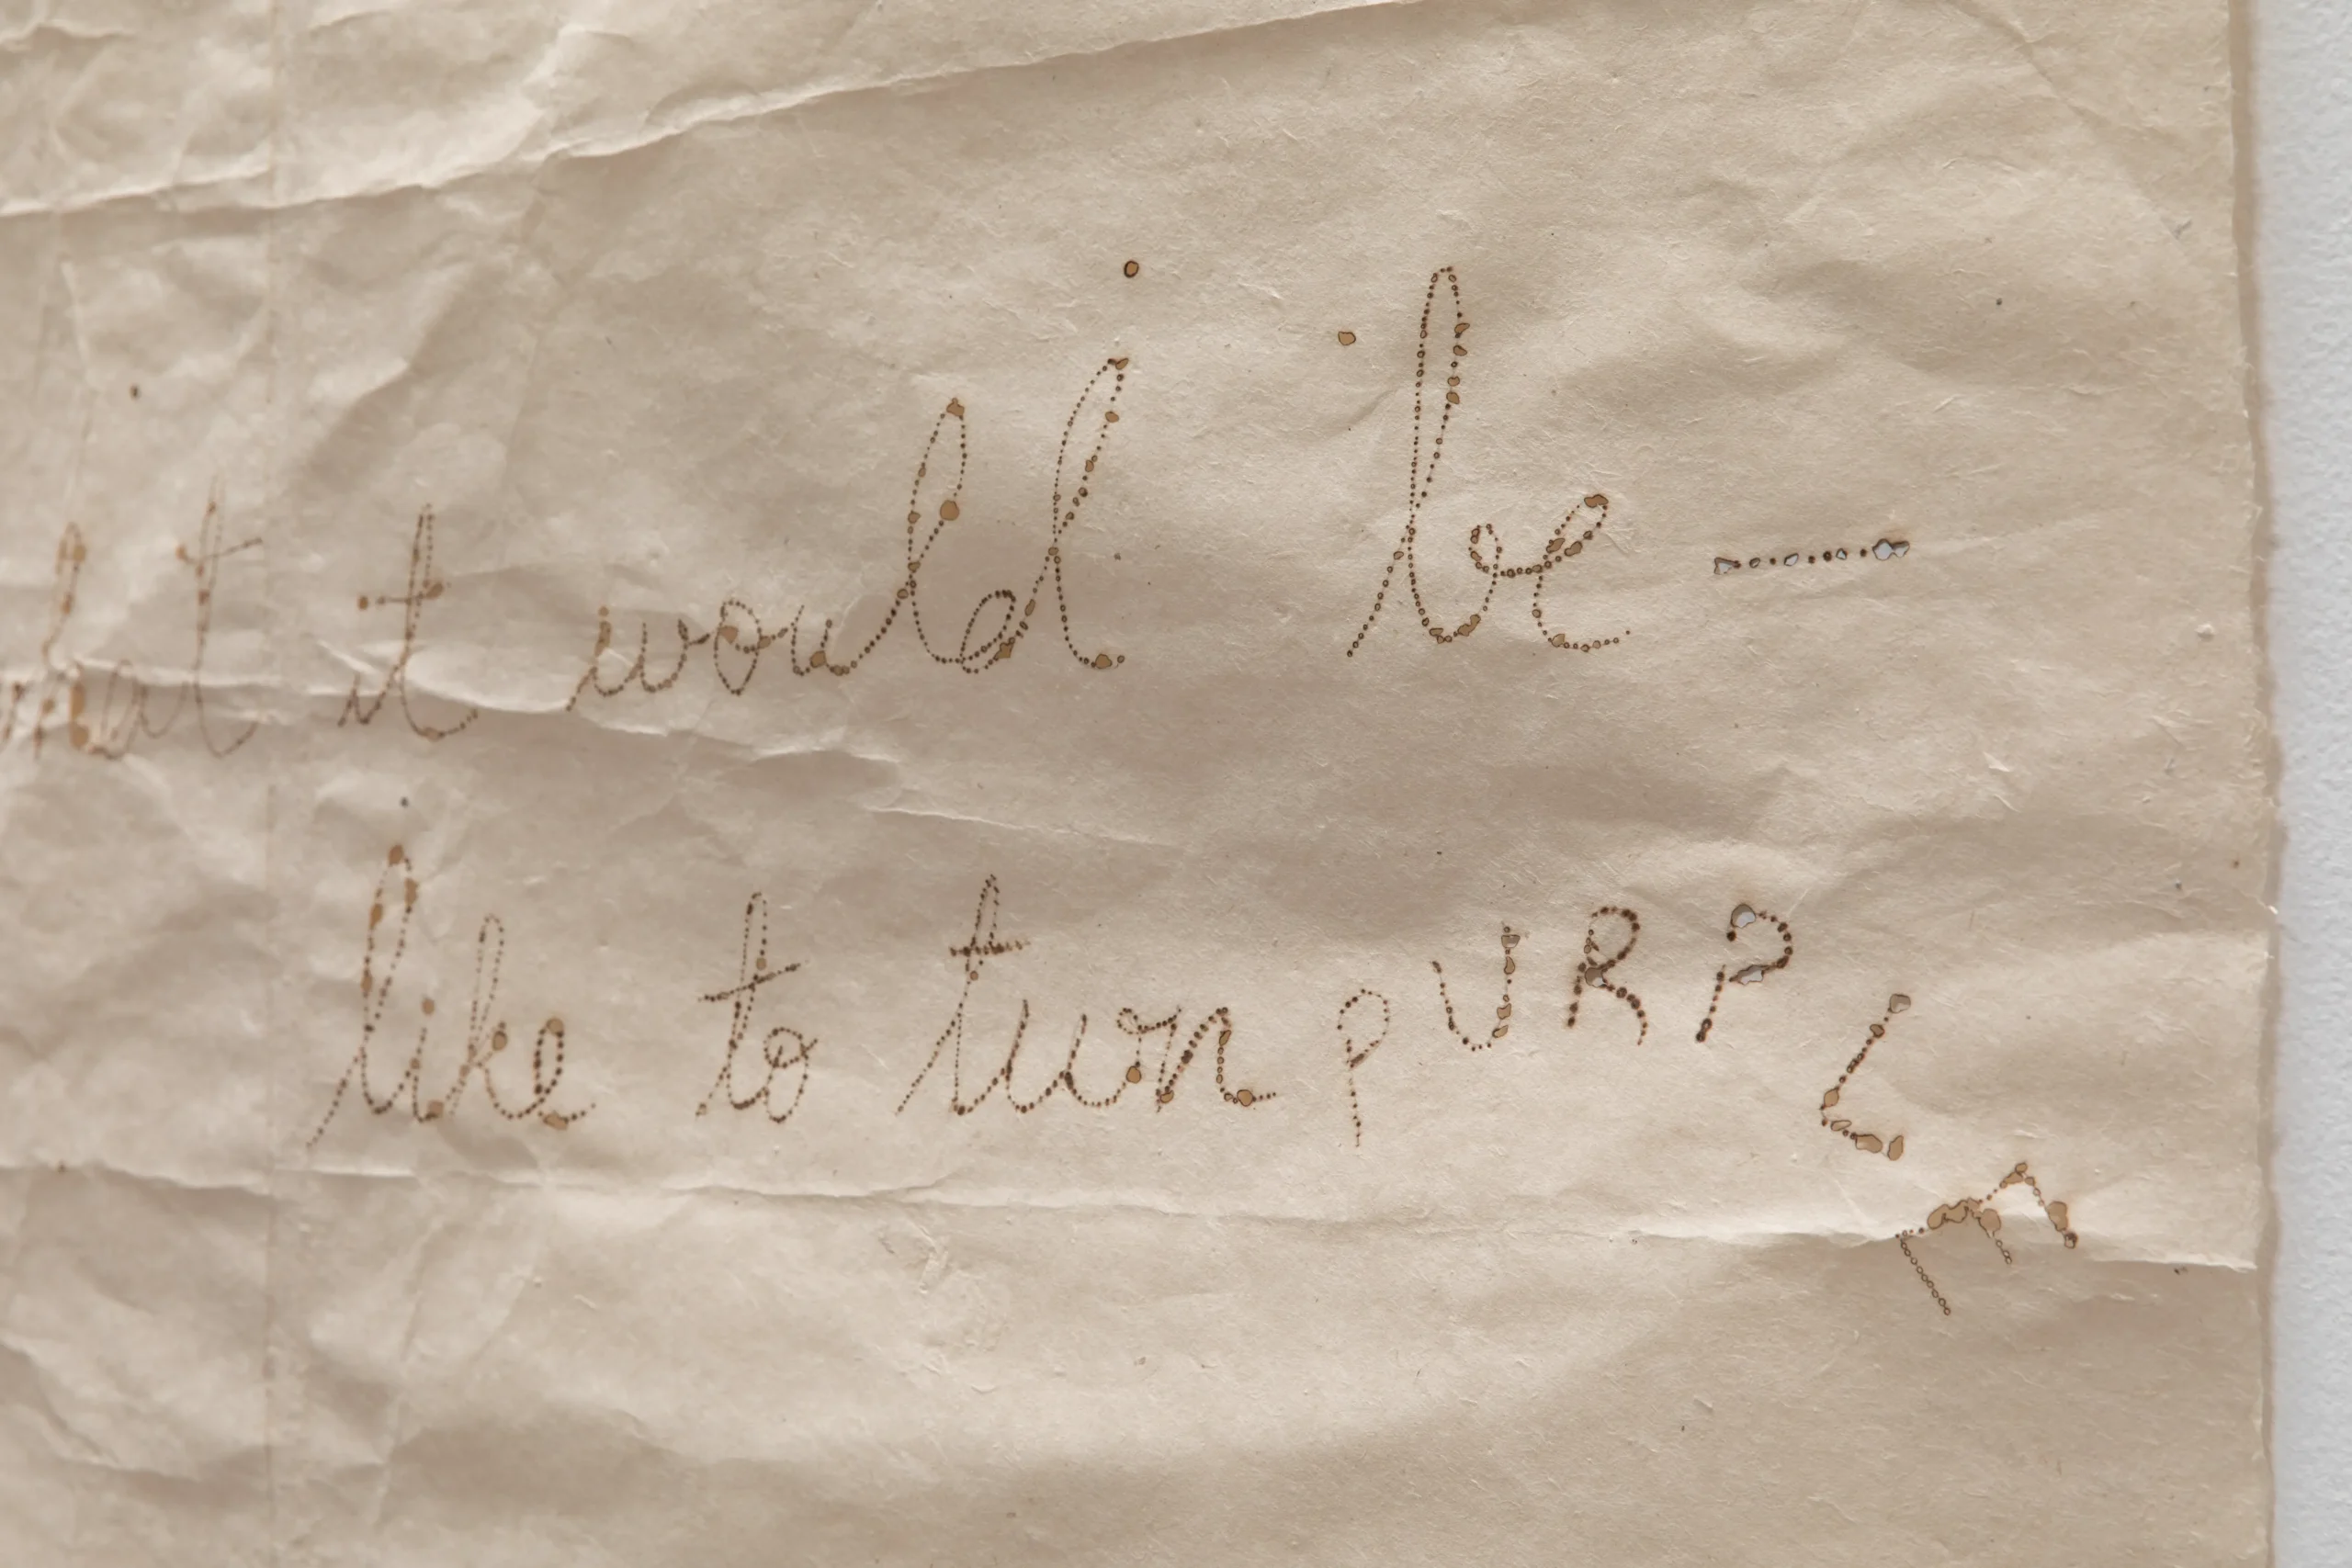 what it would be —
like to turn pURPLE